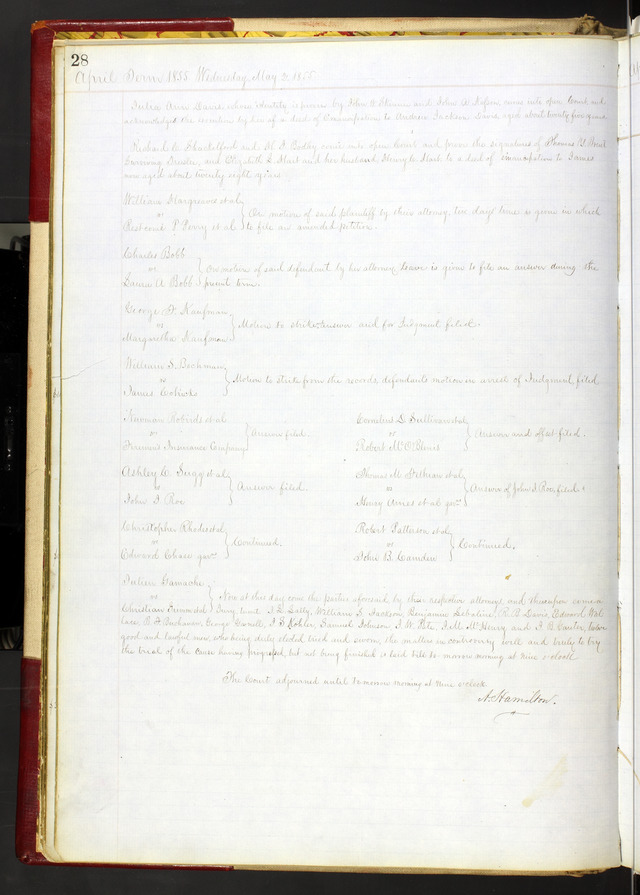 28
April Term 1855 Wednesday May 2 1855
Julia Ann Davis whose identity is proven by John and John came into open Court and
acknowledged the execution by her of a deed of Emancipation to Andrew Jackson Davis aged about twenty five years
Richard C. Shackelford and came into open Court and prove the signatures of Thomas
and Elizabeth S. Hart and her husband Henry Hart to a deed of emancipation to James
now aged about twenty eight years
William Hargreaves et al
vs
Perry et al
On motion of said plaintiff by their attorney, ten days leave is given in which
to file an amended petition.
Charles Bobb
vs
Laura A Bobb
On motion of said defendant by her attorney leave is given to file an answer during the
present term.
George F. Kaufman
vs
Margaretha Kaufman
Motion to strike answer and for Judgment filed.
William S. Beckman
vs
James
Motion to strike from the records, defendants motion in arrest of Judgment, filed
et al
vs
Firemens Insurance Company
Answer filed.
Cornelius D. Sullivan et al
vs
Robert
Answer and offset filed.
Ashley C. Sugg et al
vs
John J. Roe
Answer filed.
Thomas M. et al
vs
Henry Ames et al garr
Answer of John J Roe, filed.
Christopher Rhodes et al
vs
Edward Chase garr
Continued.
Robert Patterson et al
vs
John B. Camden
Continued.
Julien Gamache
vs
Christian
Now at this day come the parties aforesaid by their respective attorneys and thereupon came a
Jury to wit J. Lally, William G. Jackson, Benjamin R B Davis, Edward Wal
lace, B. F. Buchanan, George Garvell, J S Kohler, Samuel Johnson, J. W. Pete, J. M. McHenry and J. B. Carter, twelve
good and lawful men, who being duly elected tried and sworn, the matters in controversy well and truly to try
the trial of the cause having progressed, but not being finished is laid till to-morrow morning at nine o'clock
The Court adjourned until to-morrow morning at nine o'clock
A. Hamilton.